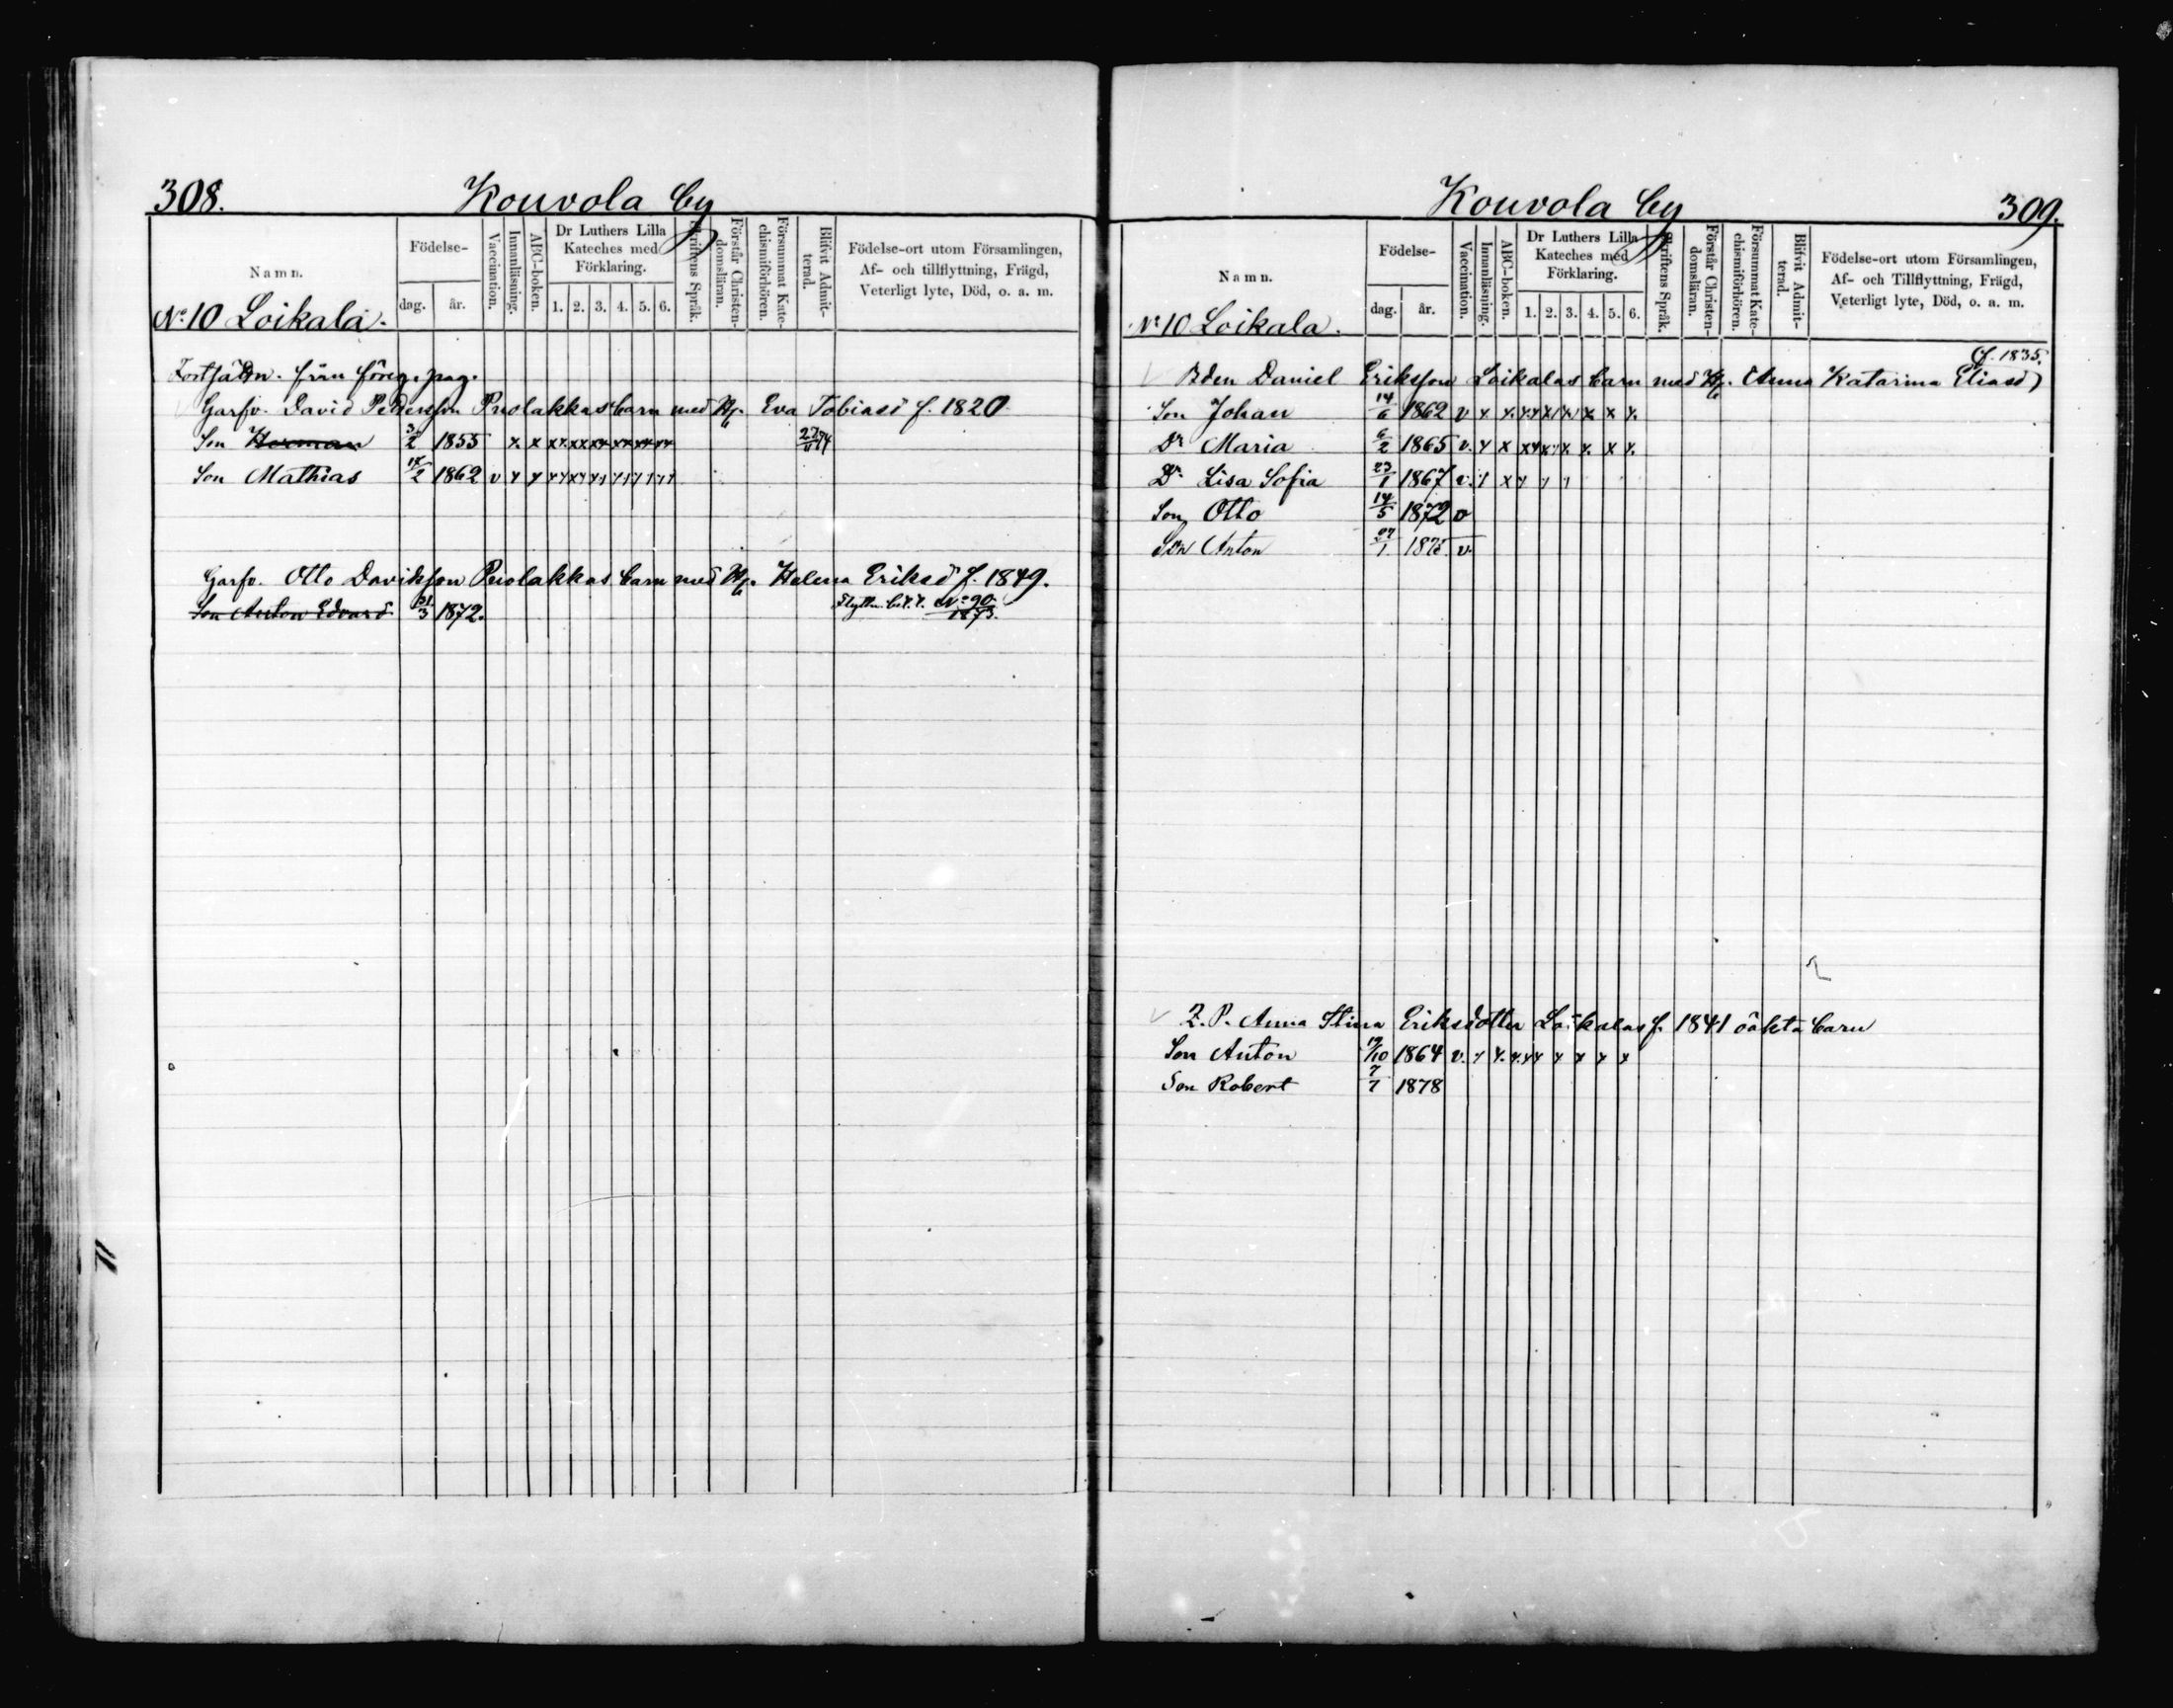 308. Kouvola by
Namn.
Födelse-
dag. år.
Vaccination.
Innanläsning.
ABC-boken.
Dr Luthers Lilla
Kateches med
Förklaring.
1. 2. 3. 4. 5. 6.
Skriftens Språk.
Förstår Christen-
domsläran.
Försummat Kate-
chismiförhören.
Blifvit Admit-
terad.
Födelse-ort utom Församlingen,
Af- och tillflyttning, Frägd,
Veterligt lyte, Död, o. a. m.
No 10 Loikala.
från föreg. pag.
David Pettersson Puolakkas barn med Hu. Eva Tobiasd f. 1820
Son Herman 3/2 1855 x x xx xx xx xx xx xx
Son Mathias 2 1862 v x x xx xx xx xx xx xx
Otto Davidsson Puolakkas barn med Hu. Helena Eriksd f. 1849.
Son Anton Edvard 31/3 1872. Flyttn. bet. No 90 1873.
Kouvola by 309.
Namn.
Födelse-
dag. år.
Vaccination.
Innanläsning.
ABC-boken.
Dr Luthers Lilla
Kateches med
Förklaring.
1. 2. 3. 4. 5. 6.
Skriftens Språk.
Förstår Christen-
domsläran.
Försummat Kate-
chismiförhören.
Blifvit Admit-
terad.
Födelse-ort utom Församlingen,
Af- och Tillflyttning, Frägd,
Veterligt lyte, Död, o. a. m.
No 10 Loikala.
f. 1835.
Bden Daniel Eriksson Loikalas barn med Hu. Anna Katarina Eliasd
Son Johan 14/6 1862 v
Dr Maria 6/2 1865 v.
Dr Lisa Sofia 23/1 1867 v.
Son Otto 14/5 1872 v
Son Anton 27/1 v.
Anna Stina Eriksdotter Loikalas f. 1841 oäkta barn
Son Anton /10 1864 v.
Son Robert 7/7 1878